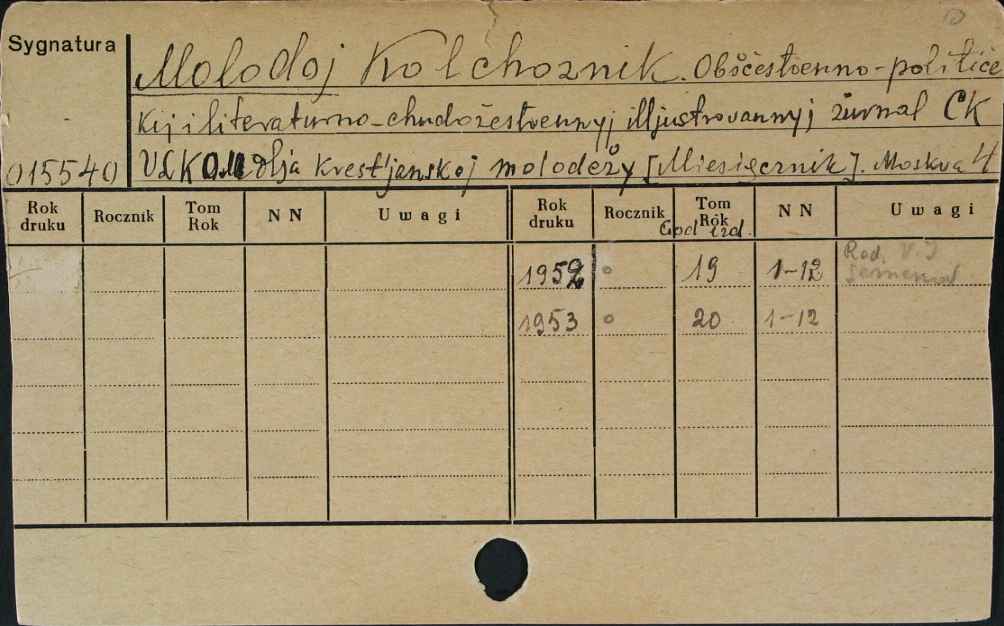 Sygnatura
Molodoj Kolchoznik. Obščestvenno-političe
kij i literaturno-chudožestvennyj illjustrovannyj žurnal CK
015540 VLKOM dlja krest'janskoj molodeży [Miesięcznik]. Moskva 4
Rok druku Rocznik Tom Rok N N Uwagi Rok druku Rocznik Tom Rok N N Uwagi
God izd.
1952 ° 19 1-12 Red. V. I
1953 ° 20 1-12